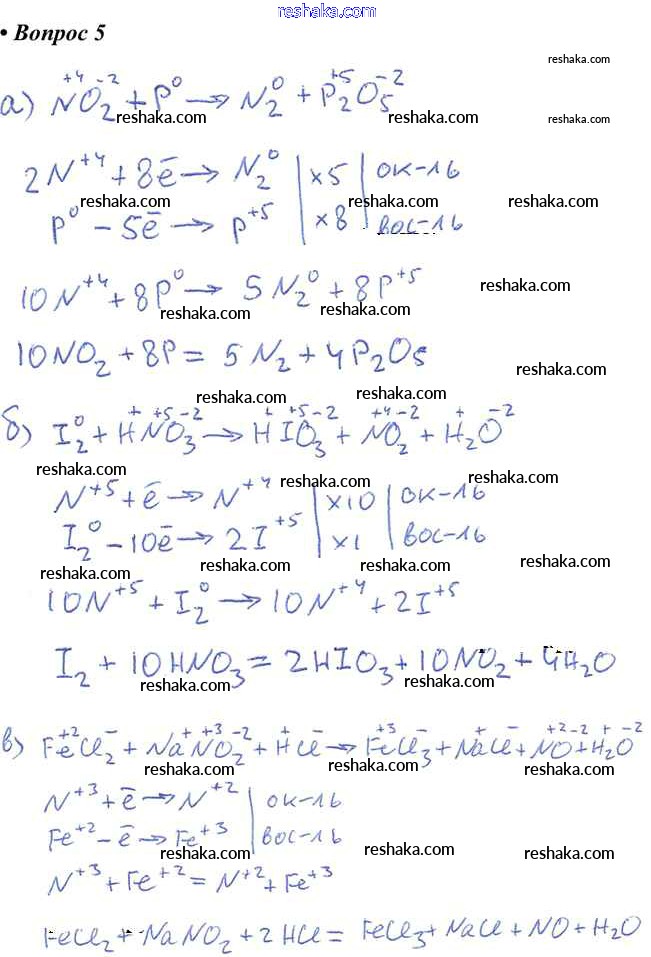 reshaka.com
• Вопрос 5
reshaka.com
а) N⁺⁴O₂⁻² + P⁰ → N₂⁰ + P₂⁺⁵O₅⁻²
reshaka.com reshaka.com reshaka.com
2N⁺⁴ + 8ē → N₂⁰ | ×5 | ок-ль
reshaka.com reshaka.com reshaka.com
P⁰ - 5ē → P⁺⁵ | ×8 | вос-ль
10N⁺⁴ + 8P⁰ → 5N₂⁰ + 8P⁺⁵
reshaka.com reshaka.com reshaka.com
10NO₂ + 8P = 5N₂ + 4P₂O₅
reshaka.com
reshaka.com reshaka.com
б) I₂⁰ + H⁺N⁺⁵O₃⁻² → H⁺I⁺⁵O₃⁻² + N⁺⁴O₂⁻² + H₂⁺O⁻²
reshaka.com reshaka.com reshaka.com
N⁺⁵ + ē → N⁺⁴ | ×10 | ок-ль
I₂⁰ - 10ē → 2I⁺⁵ | ×1 | вос-ль
reshaka.com reshaka.com reshaka.com
10N⁺⁵ + I₂⁰ → 10N⁺⁴ + 2I⁺⁵
I₂ + 10HNO₃ = 2HIO₃ + 10NO₂ + 4H₂O
reshaka.com reshaka.com reshaka.com
в) Fe⁺²Cl₂⁻ + Na⁺N⁺³O₂⁻² + H⁺Cl⁻ → Fe⁺³Cl₃⁻ + Na⁺Cl⁻ + N⁺²O⁻² + H₂⁺O⁻²
reshaka.com reshaka.com reshaka.com
N⁺³ + ē → N⁺² | ок-ль
Fe⁺² - ē → Fe⁺³ | вос-ль
reshaka.com reshaka.com reshaka.com
N⁺³ + Fe⁺² = N⁺² + Fe⁺³
FeCl₂ + NaNO₂ + 2HCl = FeCl₃ + NaCl + NO + H₂O